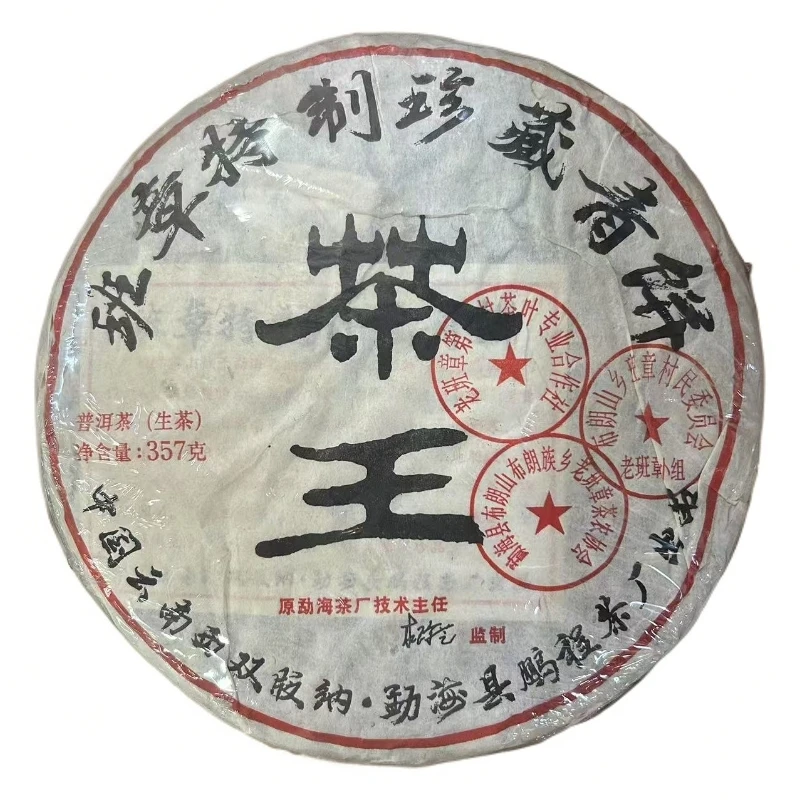 班章特制珍藏青饼
茶
王
普洱茶（生茶）
净含量：357克
老班章第 村茶叶专业合作社
布朗山乡班章村民委员会
老班章小组
勐海县布朗山布朗族乡老班章茶农协会
原勐海茶厂技术主任
监制
中国云南西双版纳·勐海县鹏程茶厂出品